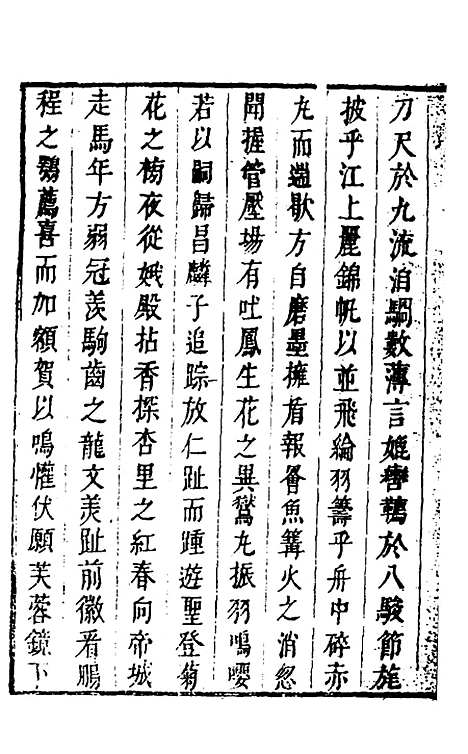 刀尺於九流洎騶數薄言媲轡鞲於八駿節旄
披乎江上麗錦帆以並飛綸羽籌乎舟中碎赤
丸而遄歇方自磨墨擁盾報魚篝火之消忽
聞握管壓場有吐鳳生花之異鸞丸振羽鳴嚶
若以嗣歸昌麟子追踪放仁趾而踵遊聖登菊
花之樹夜從娥殿拈香探杏里之紅春向帝城
走馬年方弱冠羨駒齒之龍文美趾前徽看鵬
程之鶚薦喜而加額賀以鳴懽伏願芙蓉鏡下